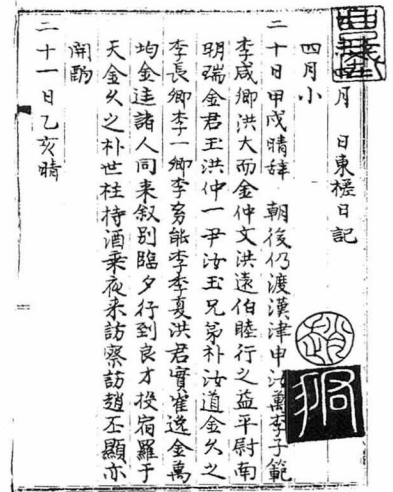 月　日東槎日記
四月小
二十日甲戌晴辞　朝後仍渡漢津申汝萬李子範
李咸卿洪大而金仲文洪遠伯睦行之益平尉南
明瑞金君玉洪仲一尹汝玉兄弟朴汝道金久之
李長卿李一卿李 能李季夏洪君實崔逸金萬
均金逵諸人同来叙別臨夕行到良才投宿羅于
天金久之朴世柱持酒乘夜来訪察訪趙丕顯亦
開酌
二十一日乙亥晴